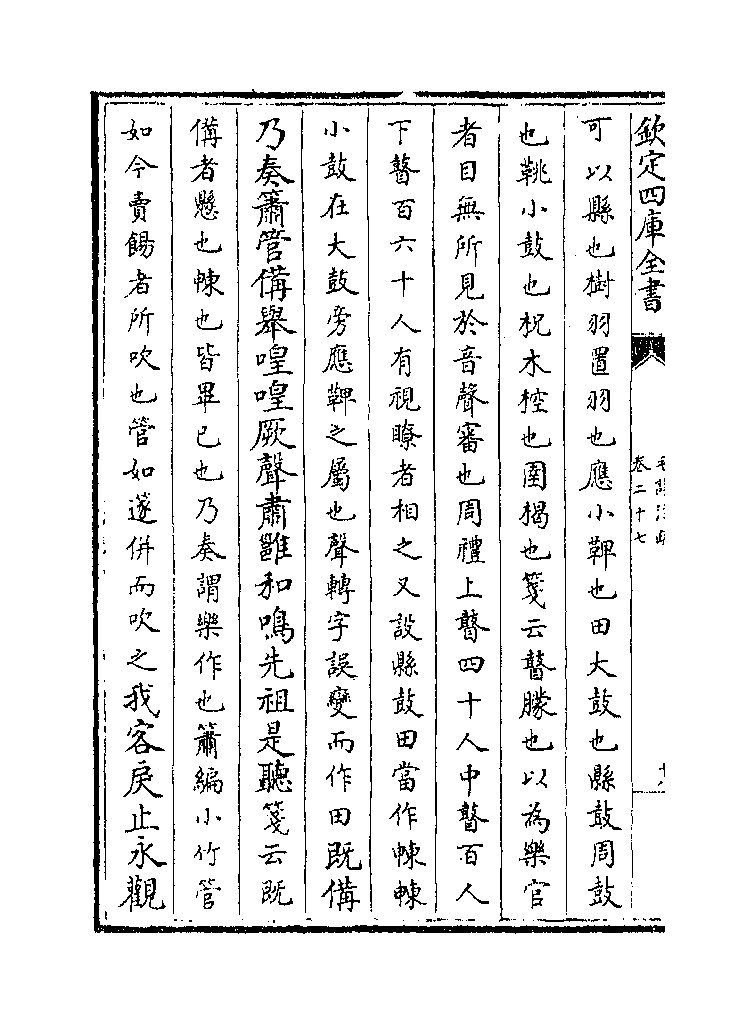 欽定四庫全書
卷二十七
可以縣也樹羽置羽也應小鞞也田大鼓也縣鼓周鼓
也鞉小鼓也柷木椌也圉楬也箋云瞽矇也以為樂官
者目無所見於音聲審也周禮上瞽四十人中瞽百人
下瞽百六十人有視瞭者相之又設縣鼓田當作朄朄
小鼓在大鼓旁應鞞之屬也聲轉字誤變而作田既備
乃奏簫管備舉喤喤厥聲肅雝和鳴先祖是聽箋云既
備者懸也朄也皆畢已也乃奏謂樂作也簫編小竹管
如今賣餳者所吹也管如篴併而吹之我客戾止永觀